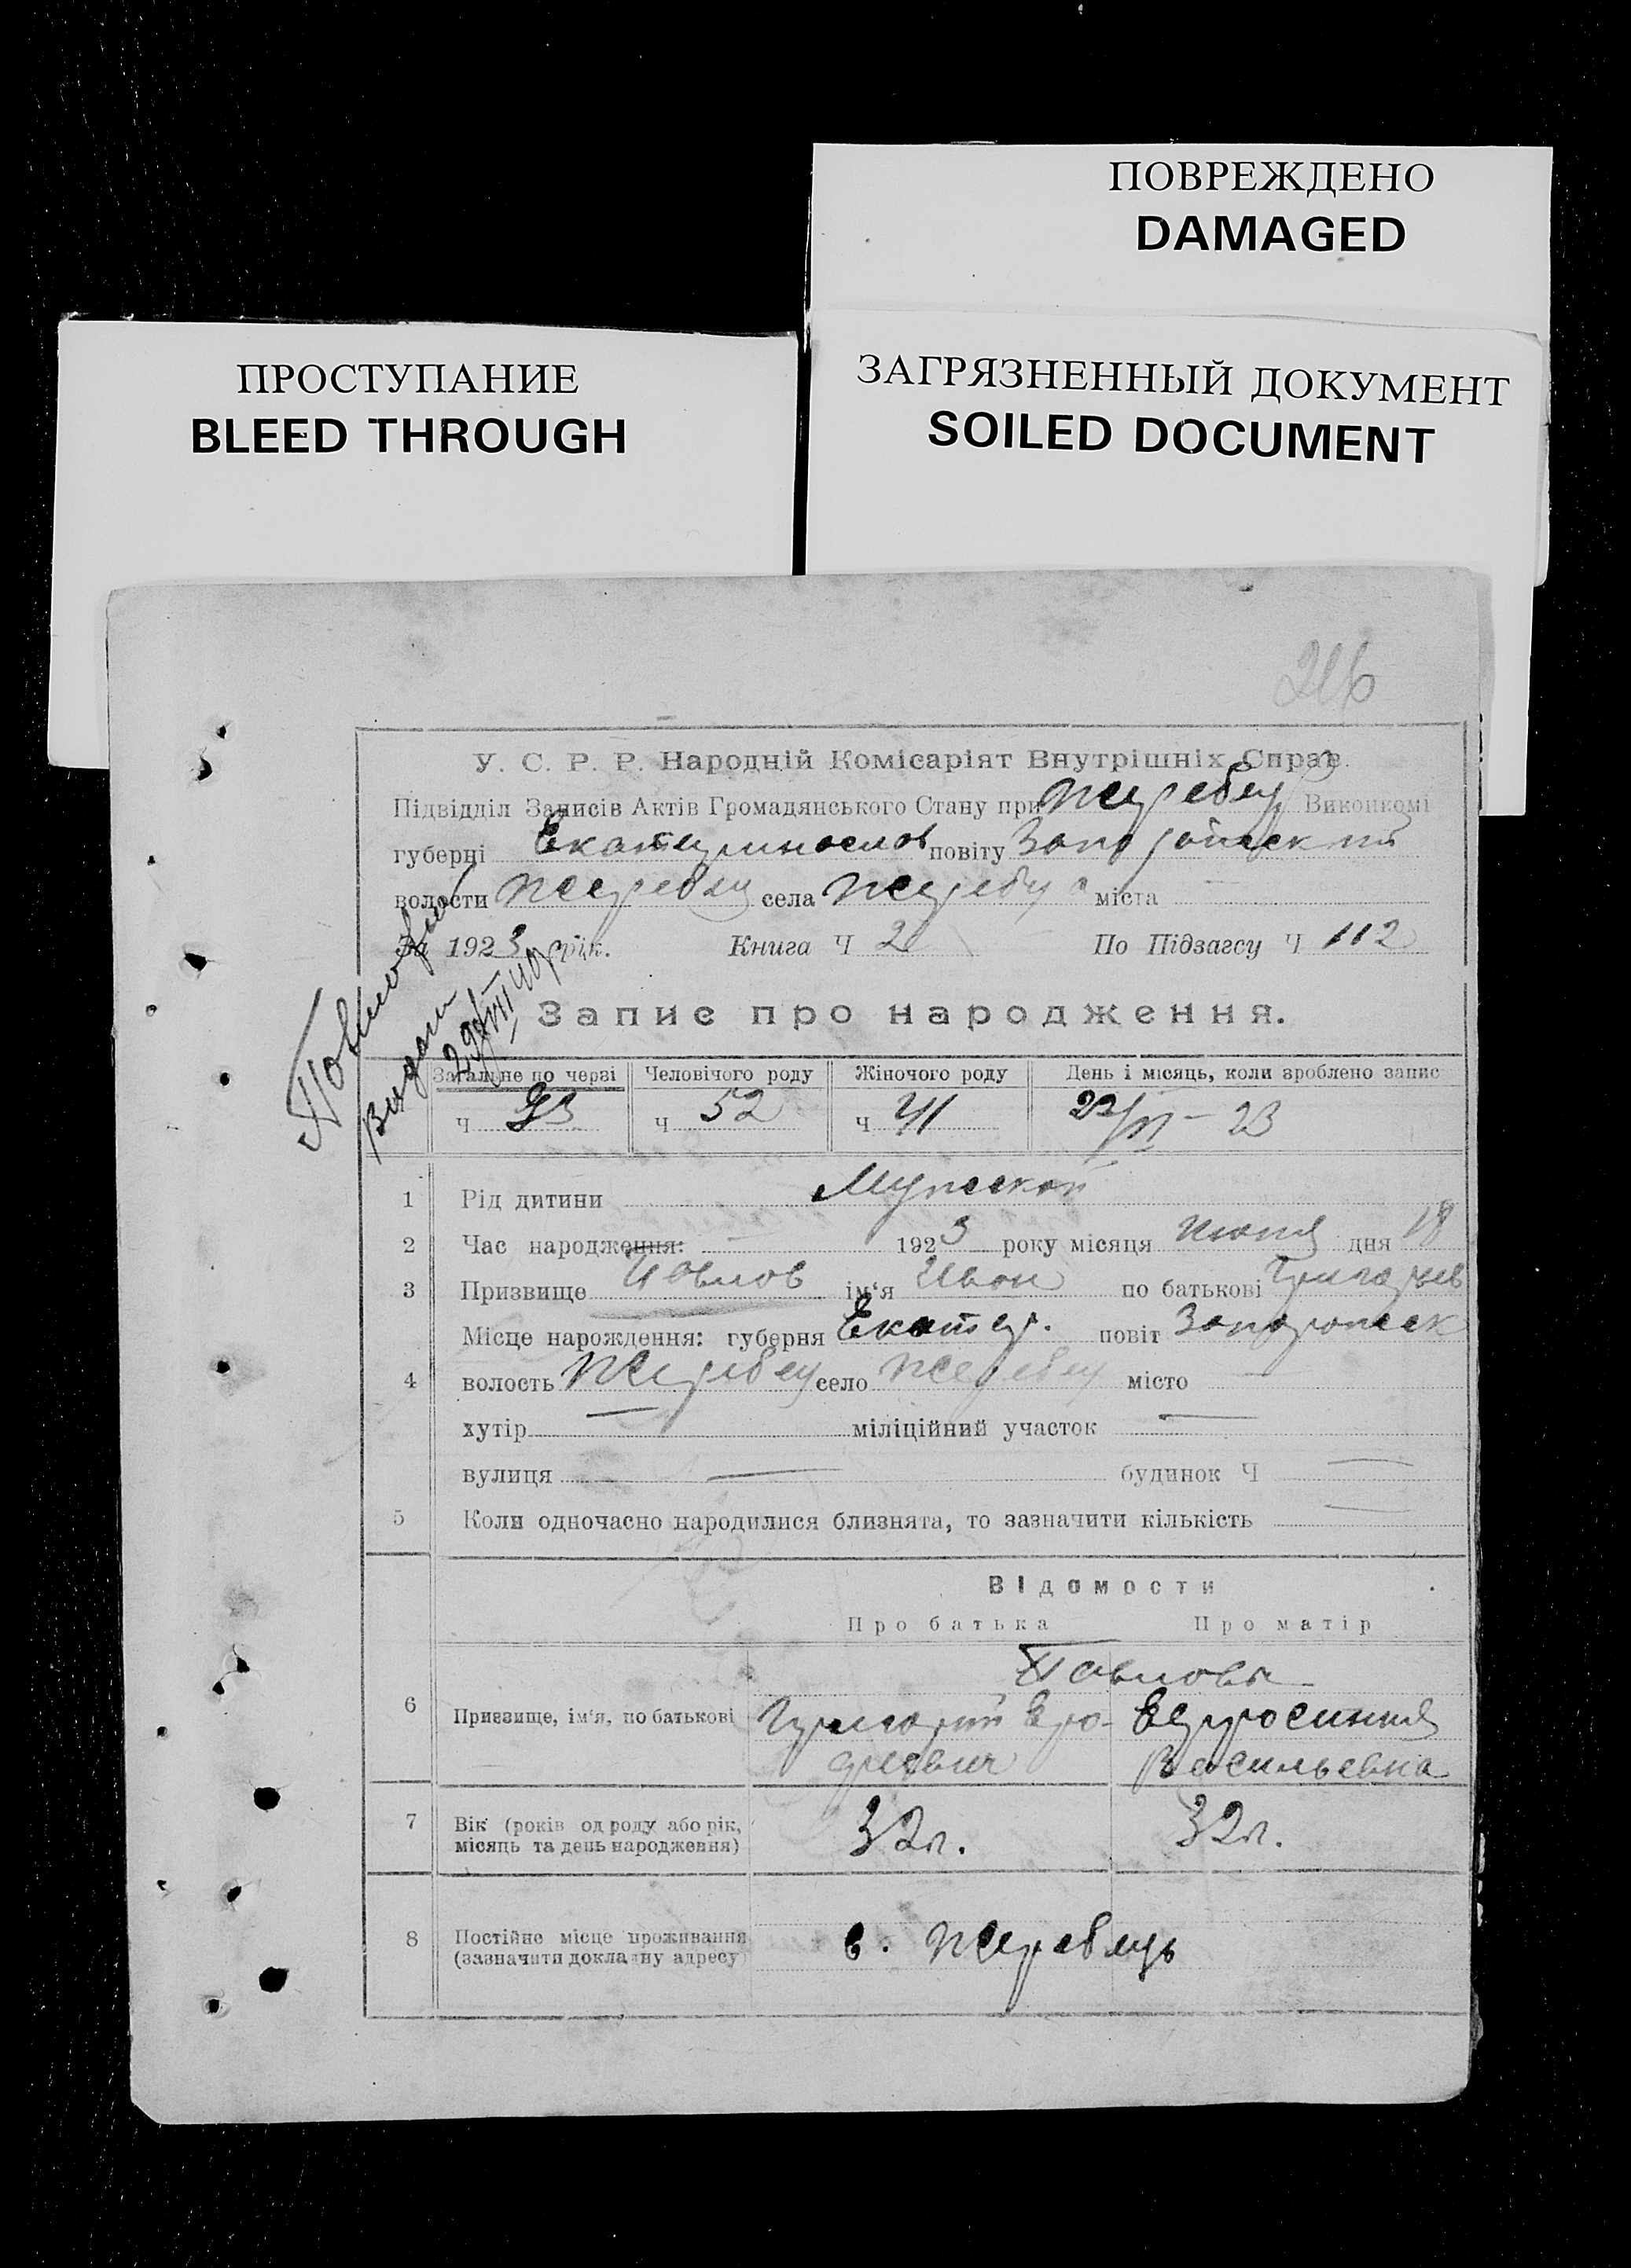 ПОВРЕЖДЕНО
DAMAGED
ПРОСТУПАНИЕ
BLEED THROUGH
ЗАГРЯЗНЕННЫЙ ДОКУМЕНТ
SOILED DOCUMENT
У. С. Р. Р. Народній Комісаріят Внутрішніх Справ.
Підвідділ Записів Актів Громадянського Стану при Жеребец Виконкомі
губерні Екатеринослов повіту Запорожский
волости Жеребец села Жеребец міста —
За 1923 рік. Книга Ч 2 По Підзагсу Ч 112
Повторно
видано
29/VIII 40
Запис про народження.
Загальне по черзі Человічого роду Жіночого роду День і місяць, коли зроблено запис
ч 93 ч 52 ч 41 22/VI – 23
1 Рід дитини Мужской
2 Час народження: 1923 року місяця Июня дня 18
3 Призвище Павлов ім'я Иван по батькові Григорьев
Місце народження: губерня Екатер. повіт Запорожск
4 волость Жеребец село Жеребец місто —
хутір — міліційний участок —
вулиця — будинок Ч —
5 Коли одночасно народилися близнята, то зазначити кількість —
Відомости
Про батька Про матір
Павловы
6 Призвище, ім'я, по батькові Григорий Ефросиния
Васильевна
7 Вік (років од роду або рік, місяць та день народження) 32 л. 32 л.
8 Постійне місце проживання (зазначити докладну адресу) с. Жеребець